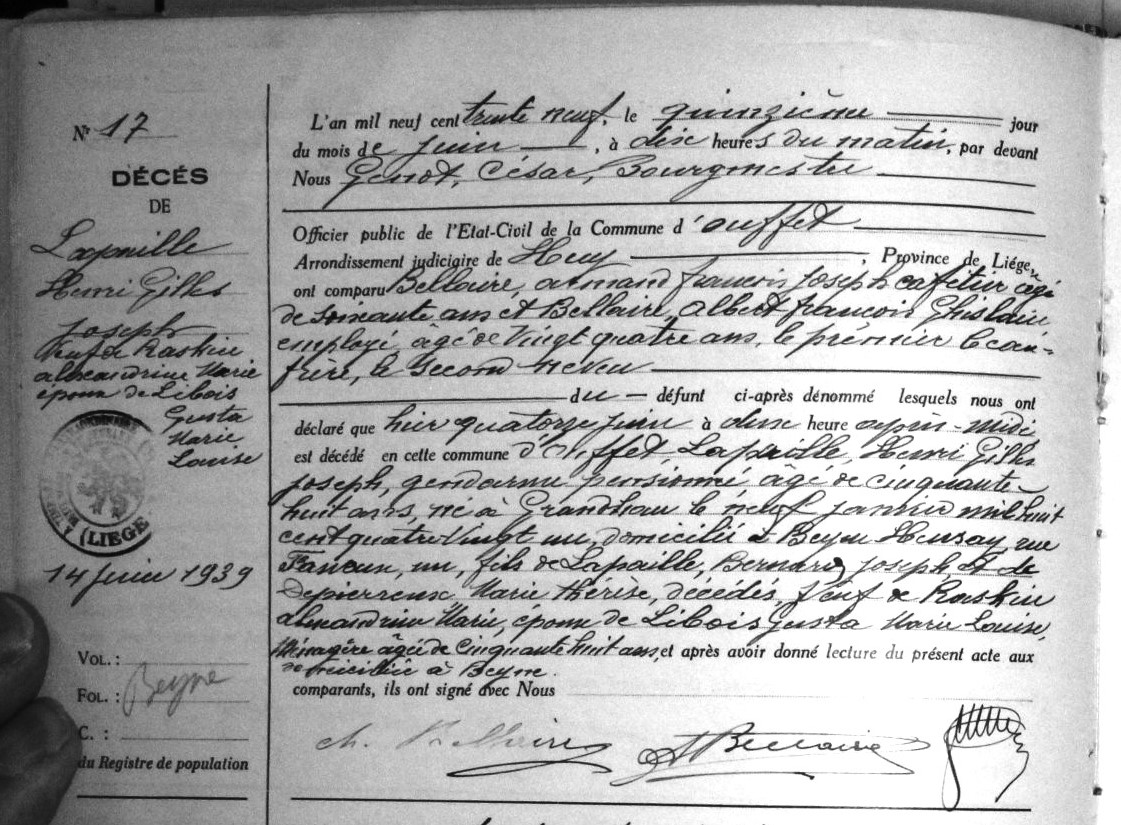 N° 17
DÉCÈS
DE
Lapaille
Henri Gilles
Joseph
Veuf de Raskin
Alexandrine Marie
époux de Libois
Gusta
Marie
Louise
(LIEGE
14 juin 1939
VOL. :
FOL. : Beyne
C. :
du Registre de population
L'an mil neuf cent trente neuf, le quinzième jour
du mois de juin, à dix heures du matin, par devant
Nous Genot, César, Bourgmestre
Officier public de l'Etat-Civil de la Commune d'ouffet
Arrondissement judiciaire de Huy, Province de Liége,
ont comparu Bellaire, armand françois Joseph cafetier âgé
de soixante ans et Bellaire, albert françois Ghislain
employé âgé de vingt quatre ans, le prémier beau-
frère, le second neveu
du défunt ci-après dénommé lesquels nous ont
déclaré que hier quatorze juin à deux heure après-midi
est décédé en cette commune d'ouffet, Lapaille, Henri Gilles
joseph, gendarme pensionné âgé de cinquante
huit ans, né à Grandhan le neuf janvier mil huit
cent quatre vingt un, domicilié à Beyne Heusay, rue
un, fils de Lapaille, Bernard, joseph, et de
Depierreux Marie thérèse, décédés, Veuf de Raskin
alexandrine Marie, époux de Libois Gusta Marie Louise,
Ménagère âgée de cinquante huit ans, et après avoir donné lecture du présent acte aux
domiciliée à Beyne.
comparants, ils ont signé avec Nous
Bellaire
ABellaire